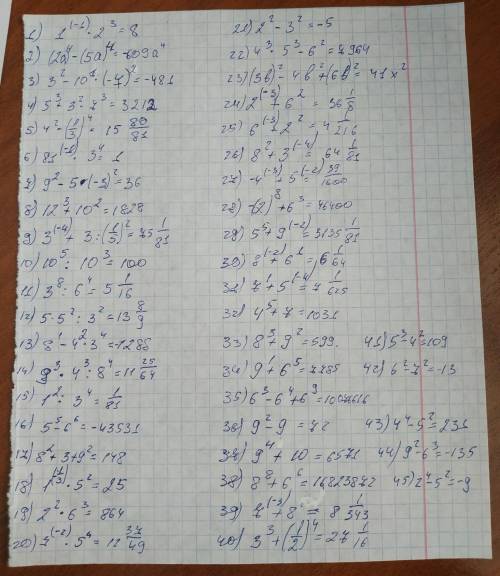 1) 1^(-1) · 2^3 = 8
2) (2a)^4 - (5a)^4 = -609a^4
3) 3^2 - 10 · (-7)^2 = -481
4) 5^3 · 3^2 · 7^3 = 3212
5) 4^2 - (1/3)^4 = 15 80/81
6) 81^(-1) · 3^4 = 1
7) 9^2 - 5 · (-3)^2 = 36
8) 12^3 + 10^2 = 1828
9) 3^(-4) + 3 : (1/5)^2 = 75 1/81
10) 10^5 : 10^3 = 100
11) 3^8 : 6^4 = 5 1/16
12) 5 · 5^2 : 3^2 = 13 8/9
13) 8^1 - 4^2 · 3^4 = -1288
14) 9^3 · 4^3 : 8^4 = 11 25/64
15) 1^2 : 3^4 = 1/81
16) 5^5 - 6^6 = -43531
17) 8^2 + 3 + 9^2 = 148
18) 1^(17) · 5^2 = 25
19) 2^2 · 6^3 = 864
20) 7^(-2) · 5^4 = 12 37/49
21) 2^2 - 3^2 = -5
22) 4^3 · 5^3 - 6^2 = 7964
23) (3b)^2 - 4b^2 + (6b)^2 = 41x^2
24) 2^(-3) + 6^2 = 36 1/8
25) 6^(-3) + 2^2 = 4 1/216
26) 8^2 + 3^(-4) = 64 1/81
27) -4^(-3) + 5^(-2) = 39/1600
28) -(2)^8 + 6^3 = 46400
29) 5^5 + 9^(-2) = 3135 1/81
30) 8^(-2) + 6^1 = 6 1/64
31) 7^1 + 5^(-4) = 7 1/625
32) 4^5 + 7 = 1031
33) 8^3 + 9^2 = 599. 41) 5^3 - 4^2 = 109
34) 9^1 + 6^5 = 7785 42) 6^2 - 7^2 = -13
35) 6^3 - 6^4 + 6^9 = 10077616
36) 9^2 - 9 = 72 43) 4^4 - 5^2 = 231
37) 9^4 + 10 = 6571 44) 9^2 - 6^3 = -135
38) 8^8 + 6^6 = 16823872 45) 2^4 - 5^2 = -9
39) 7^(-3) + 8 = 8 1/343
40) 3^3 + (1/2)^4 = 27 1/16